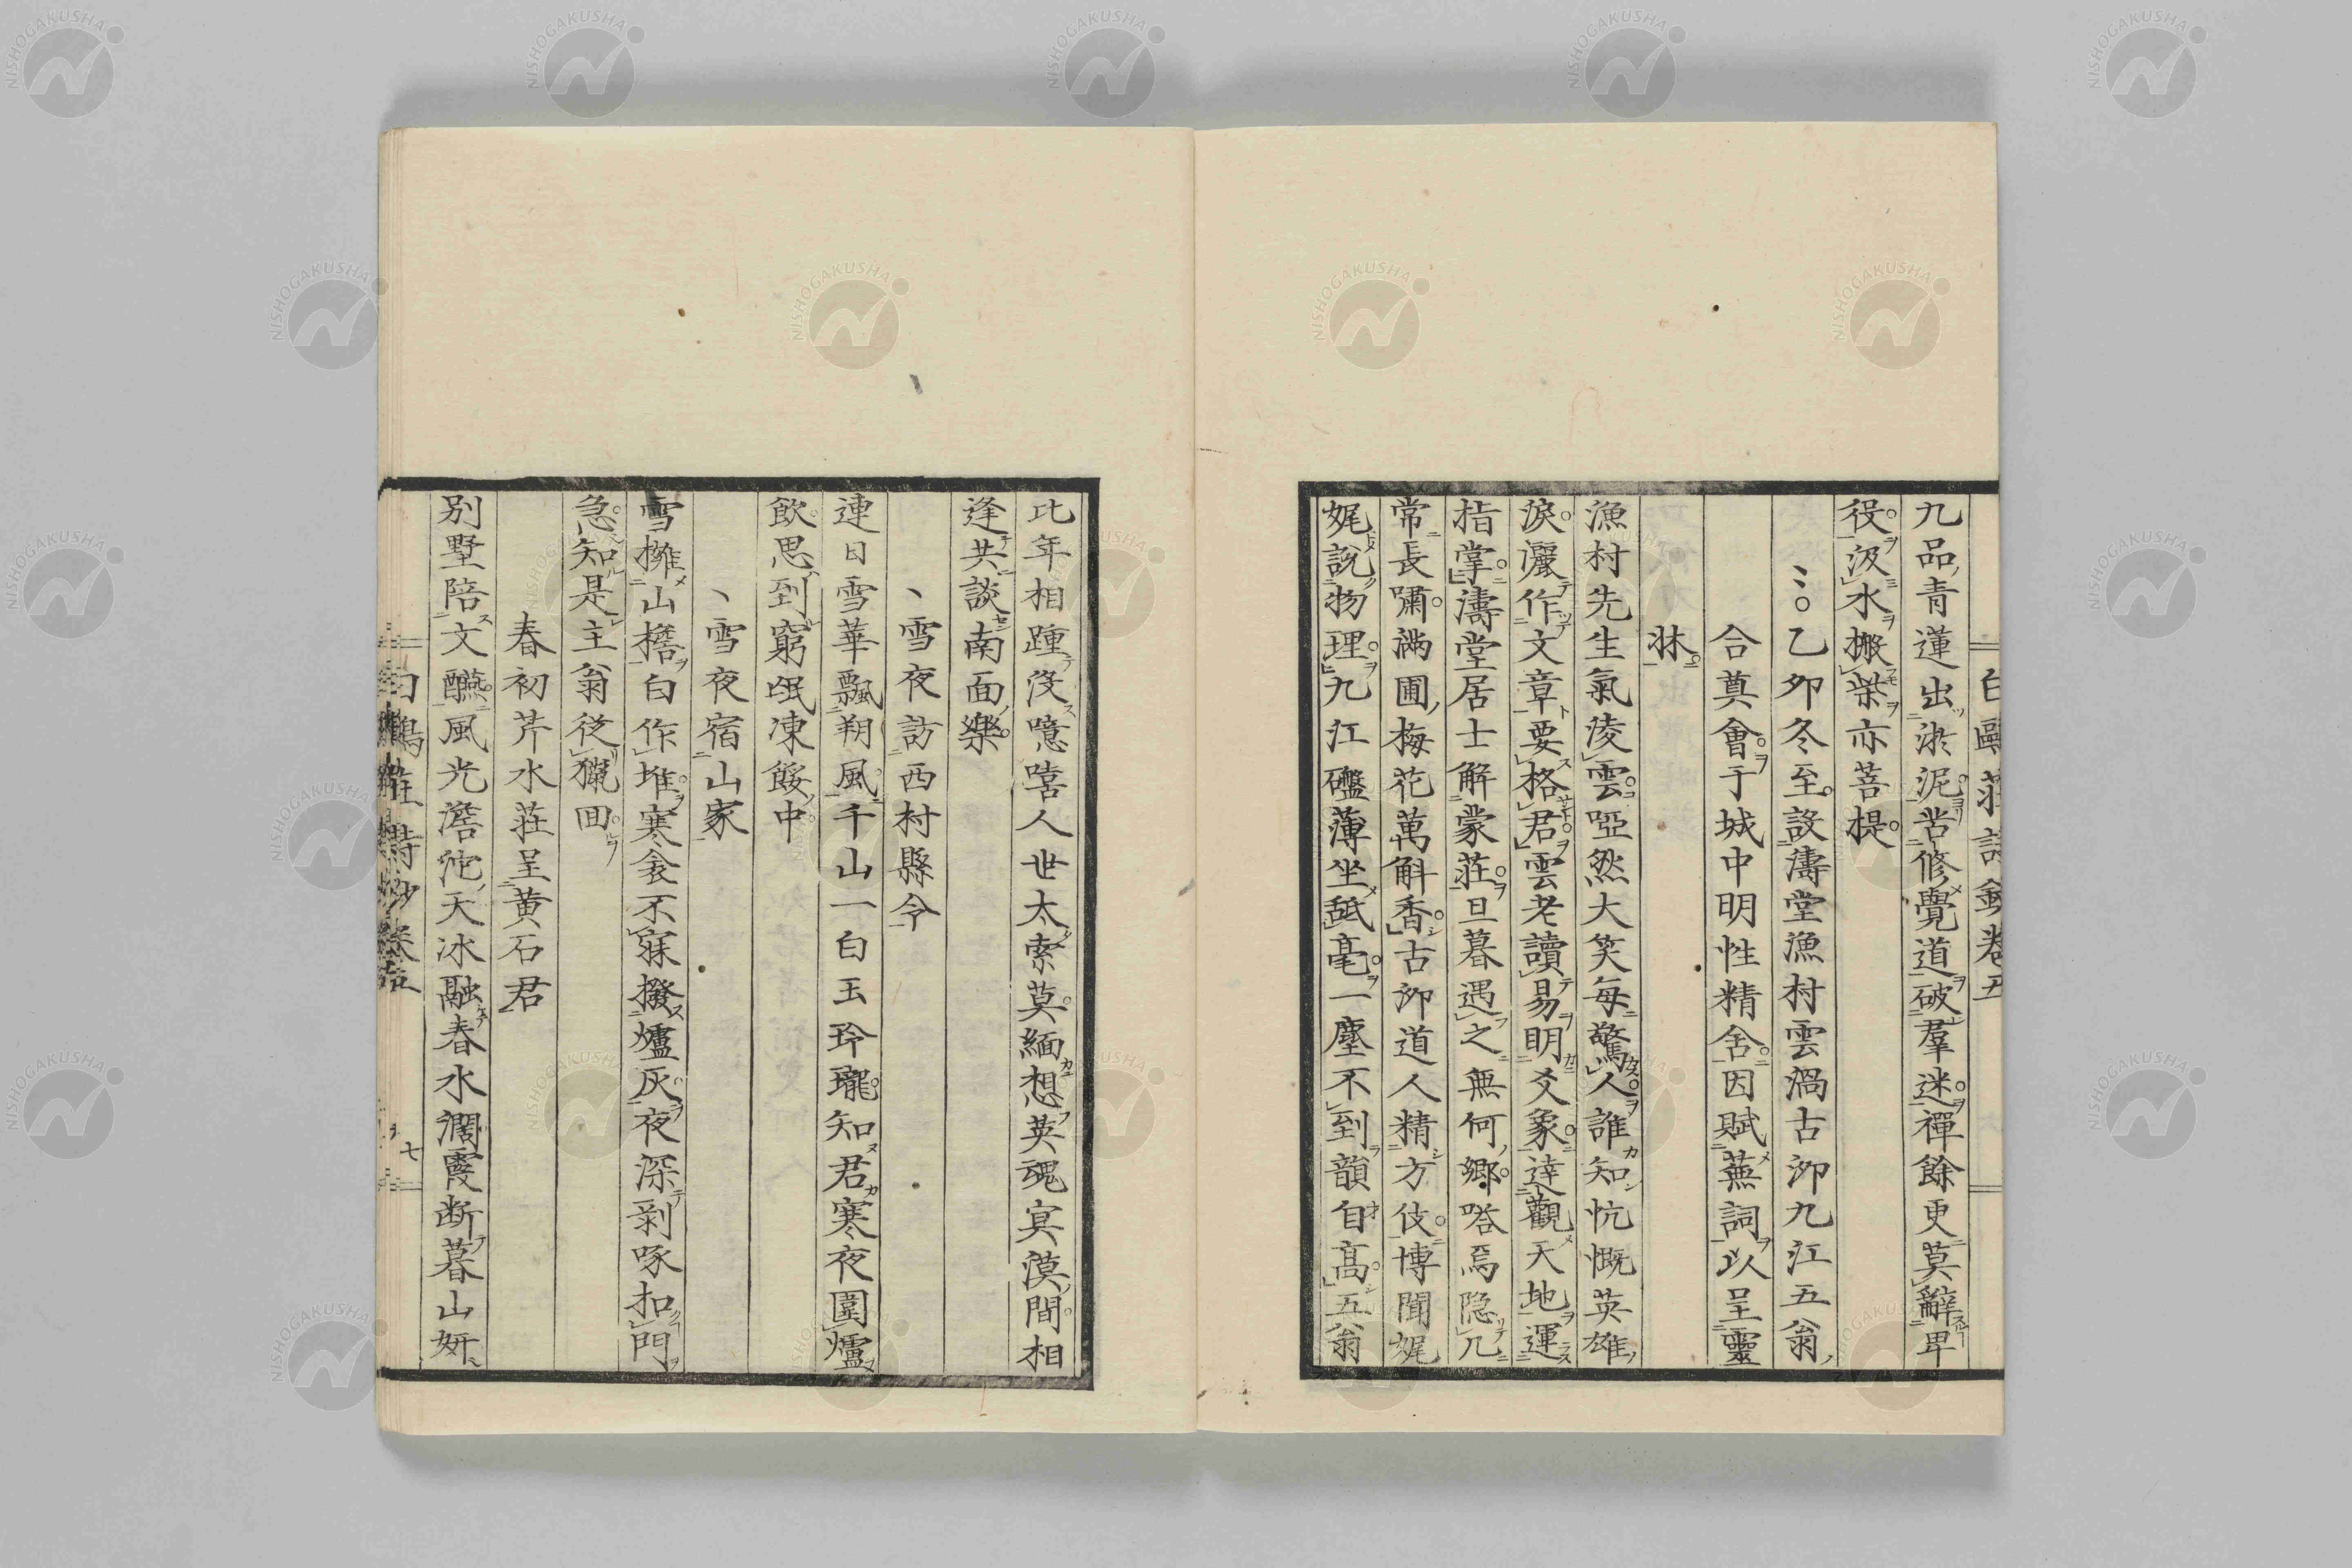 九品青蓮出淤泥苦修覺道破羣迷禪餘更莫辭卑
役汲水搬柴亦菩提
乙卯冬至設濤堂漁村雲渦古泖九江五翁
合奠會于城中明性精舍因賦蕪詞以呈靈
牀
漁村先生氣凌雲啞然大笑每驚人誰知忼慨英雄
淚灑作文章要格君雲老讀易明爻象達觀天地運
指掌濤堂居士解蒙莊旦暮遇之無何鄉嗒焉隱几
常長嘯滿圃梅花萬斛香古泖道人精方伎博聞娓
娓說物理九江礚薄坐舐毫一塵不到韻自高五翁
比年相踵沒噫嘻人世太索莫緬想英魂冥漠間相
逢共談南面樂
雪夜訪西村縣令
連日雪華飄朔風千山一白玉玲瓏知君寒夜圍爐
飲思到窮氓凍餒中
雪夜宿山家
雪擁山檐白作堆寒衾不寐撥爐灰夜深剥啄扣門
急知是主翁從獵回
春初芹水莊呈黄石君
別墅陪文醼風光澹沱天冰融春水濶霞断暮山妍
七
NISHOGAKUSHA